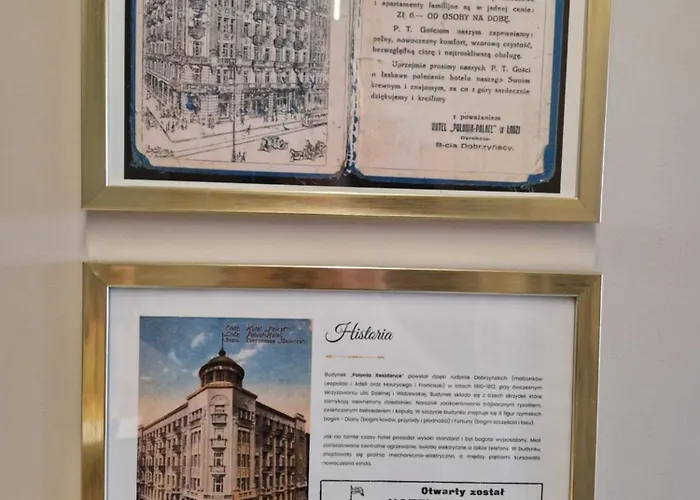 i apartamenty familijne są w jednej cenie:
Zł. 6.— OD OSOBY NA DOBĘ.
P. T. Gościom naszym zapewniamy:
pełny, nowoczesny komfort, wzorową czystość,
bezwzględną ciszę i najtroskliwszą obsługę.
Uprzejmie prosimy naszych P. T. Gości
o łaskawe polecanie hotelu naszego Swoim
krewnym i znajomym, za co z góry serdecznie
dziękujemy i kreślimy
z poważaniem
HOTEL „POLONIA-PALACE" w ŁODZI
Dyrekcja:
B-cia Dobrzyńscy.
Historia
Budynek „Polonia Residence" powstał dzięki rodzinie Dobrzyńskich (małżonków
Leopolda i Adeli oraz Maurycego i Franciszki) w latach 1910-1912, przy ówczesnym
skrzyżowaniu ulic Dzielnej i Widzewskiej. Budynek składa się z trzech skrzydeł, które
zamykają wewnętrzny dziedziniec. Narożnik zaakcentowano trójbocznym ryzalitem,
zwieńczonym belwederem i kopułą. W szczycie budynku znajduje się
bogiń - Diany (bogini łowów, przyrody i płodności) i Fortuny (bogini szczęścia i losu).
Jak na tamte czasy hotel posiadał wysoki standard i był bogato wyposażony. Miał
zainstalowane centralne ogrzewanie, światło elektryczne a także telefony. W budynku
znajdowała się pralnia mechaniczno-elektryczna, a między piętrami kursowała
nowoczesna winda.
Otwarty został